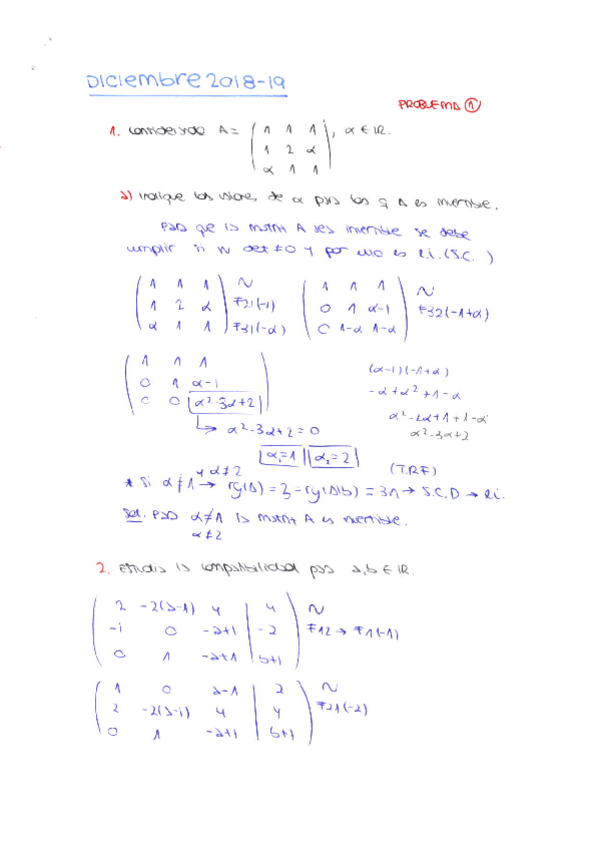 Diciembre 2018-19
PROBLEMA ①
1. Considerando A = ( 1 1 1 ), α ∈ IR.
1 2 α
α 1 1
a) Indique los valores de α para los q A es invertible.
Para que la matriz A sea invertible se debe
cumplir si su det ≠ 0 y por ello es l.i. (S.C. )
( 1 1 1 ) ~ ( 1 1 1 ) ~
1 2 α F21(-1) 0 1 α-1 F32(-1+α)
α 1 1 F31(-α) 0 1-α 1-α
( 1 1 1 )
0 1 α-1
0 0 α²-3α+2
(α-1)(-1+α)
-α+α²+1-α
α²-2α+1+1-α
α²-3α+2
↳ α²-3α+2=0
α₁=1 α₂=2
y α≠2 (T.R.F)
* Si α≠1 → rg(A)=3=rg(A|b)=3n → S.C.D → l.i.
Sol. Para α≠1 la matriz A es invertible.
α≠2
2. Estudia la compatibilidad para a,b ∈ IR.
( 2 -2(a-1) 4 | 4 ) ~
-1 0 -a+1 | -2 F12 → F1(-1)
0 1 -a+1 | b+1
( 1 0 a-1 | 2 ) ~
2 -2(a-1) 4 | 4 F21(-2)
0 1 -a+1 | b+1